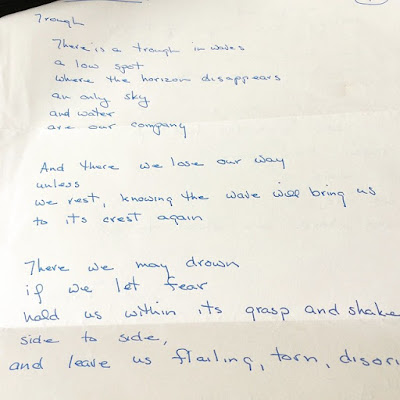 Trough
There is a trough in waves
a low spot
where the horizon disappears
an only sky
and water
are our company
And there we lose our way
unless
we rest, knowing the wave will bring us
to its crest again
There we may drown
if we let fear
hold us within its grasp and shake
side to side,
and leave us flailing, torn, disori